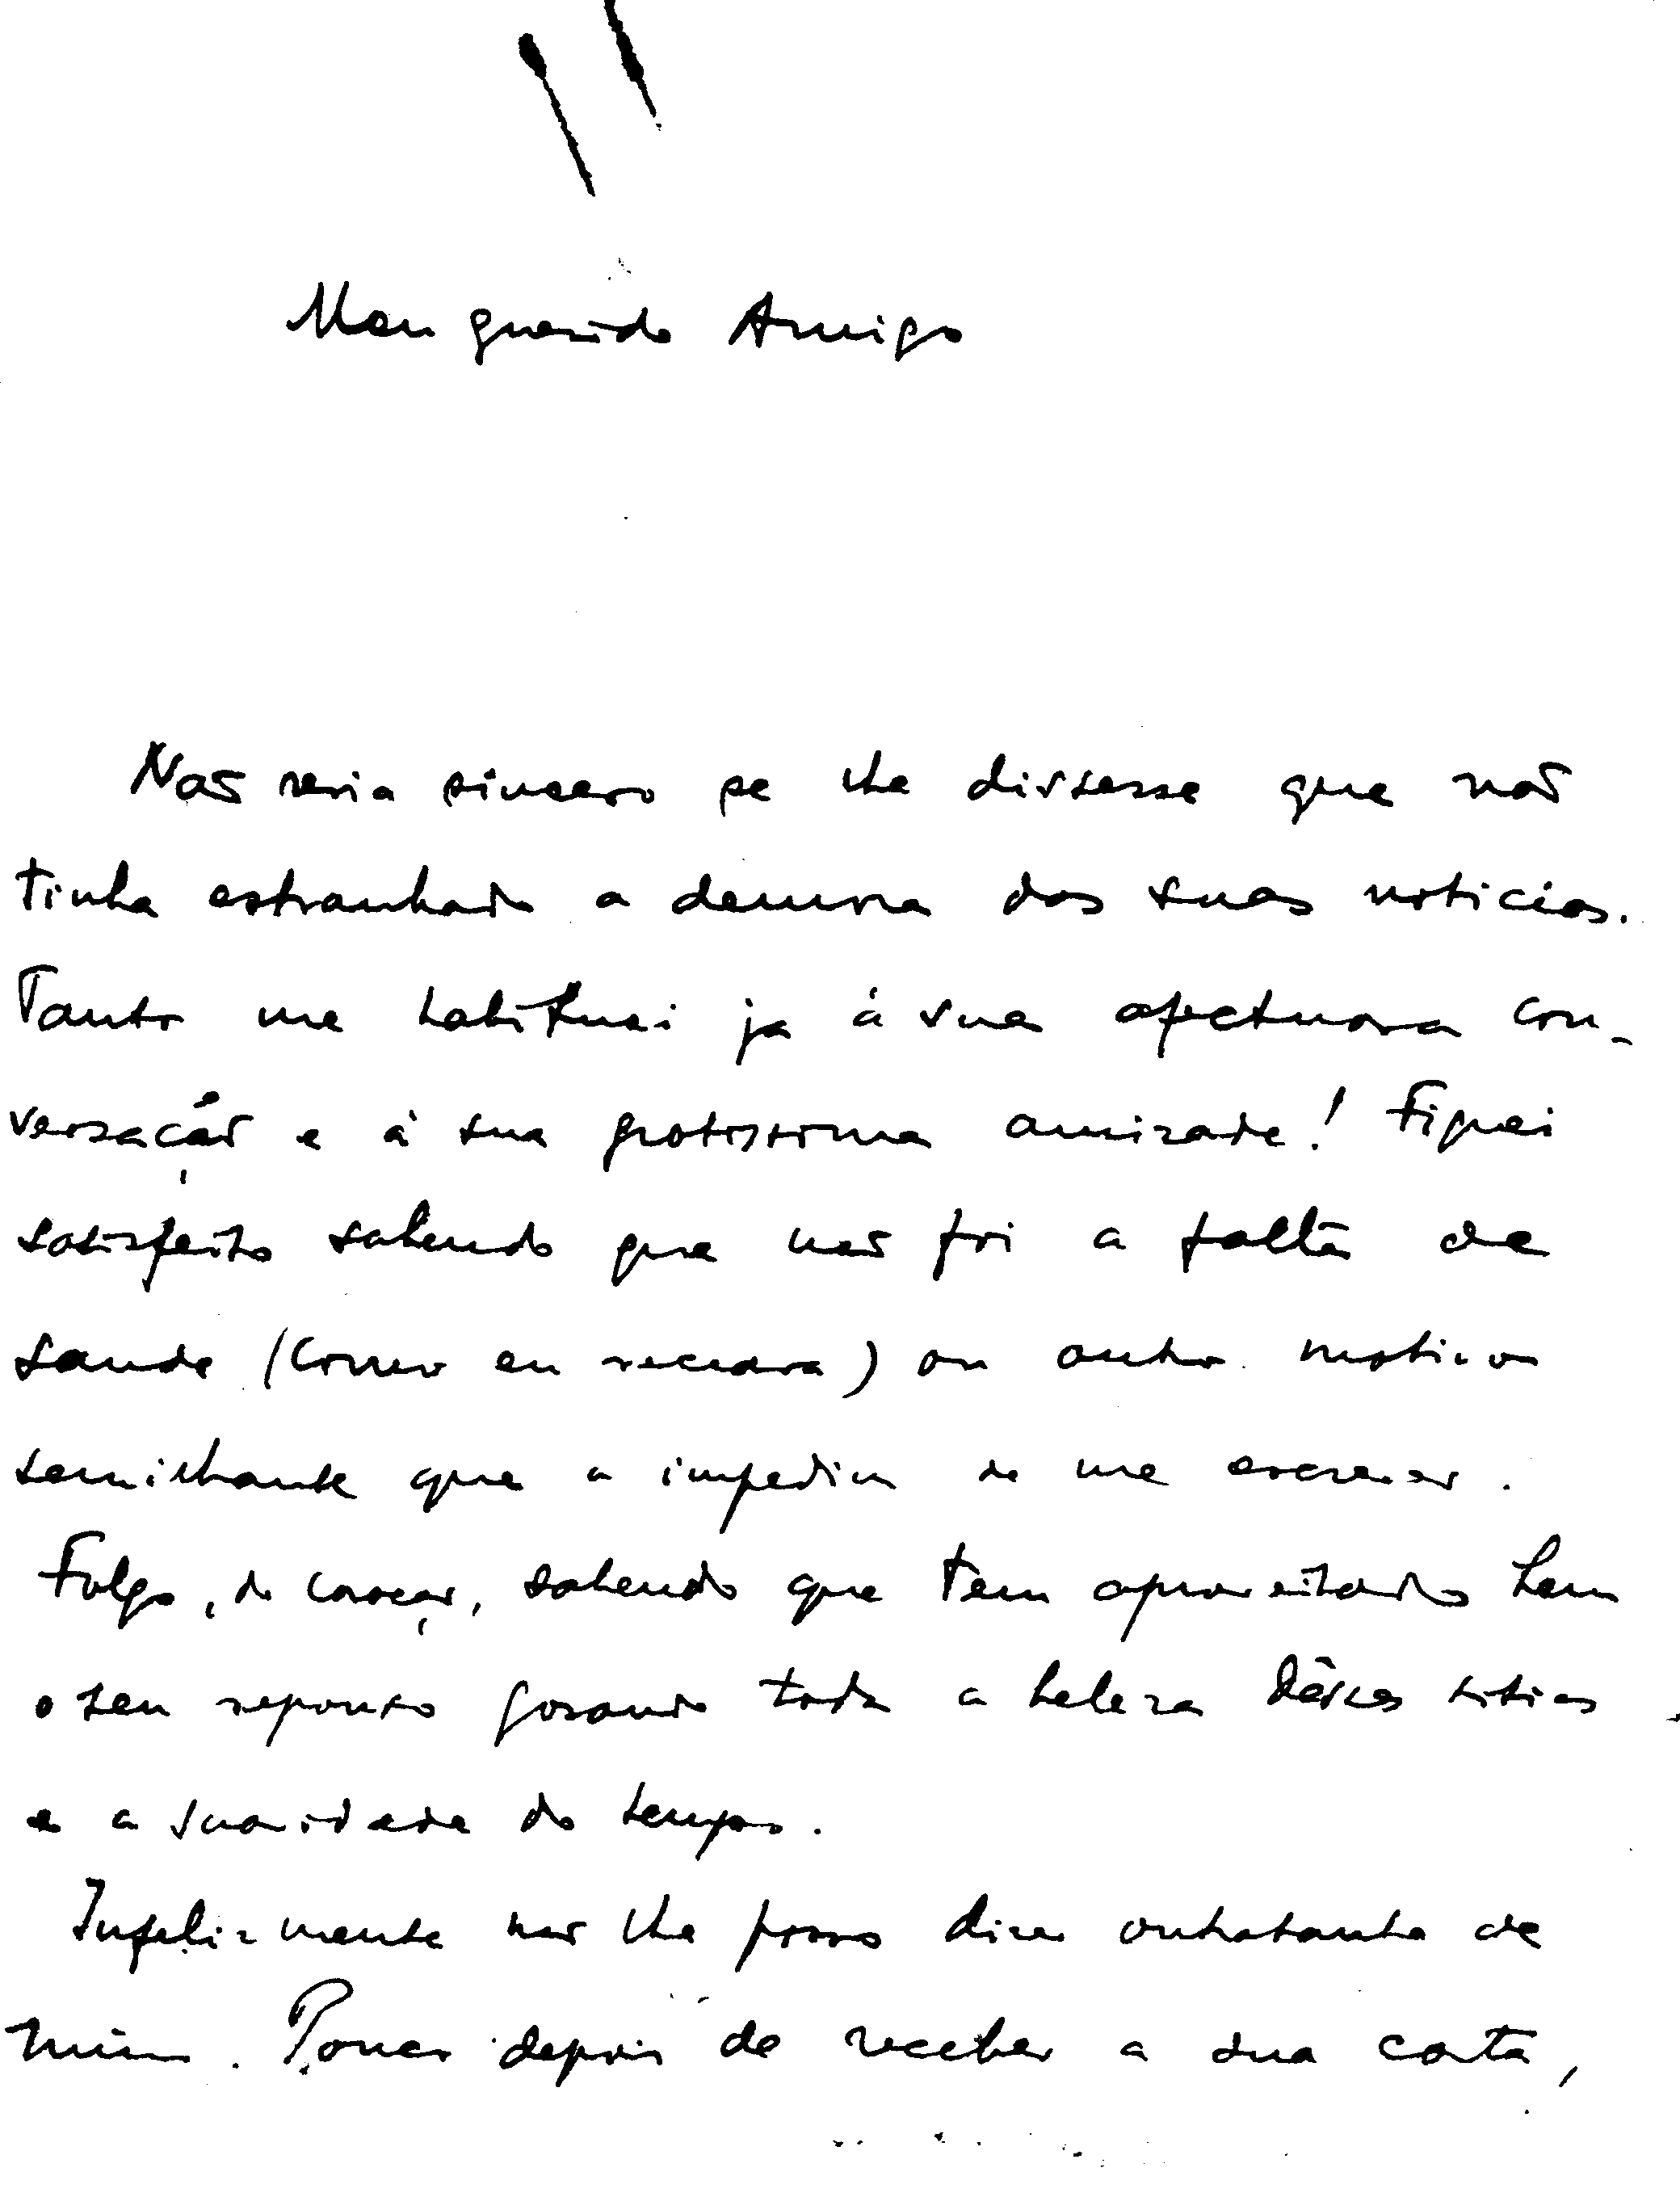 Meu querido Amigo
Não seria sincero se lhe dissesse que não
tinha estranhado a demora das suas noticias.
Tanto me habituei ja á sua afectuosa con-
versação e á sua gratissima amizade! Fiquei
satisfeito sabendo que não foi a falta de
saude (como eu receava) ou outro motivo
semilhante que o impediu de me escrever.
Folgo, do coração, sabendo que tem aproveitado bem
o seu repouso gosando toda a beleza dêsses sitios
e a suavidade do tempo.
Infelizmente não lhe posso dizer outrotanto de
mim. Pouco depois de receber a sua carta,